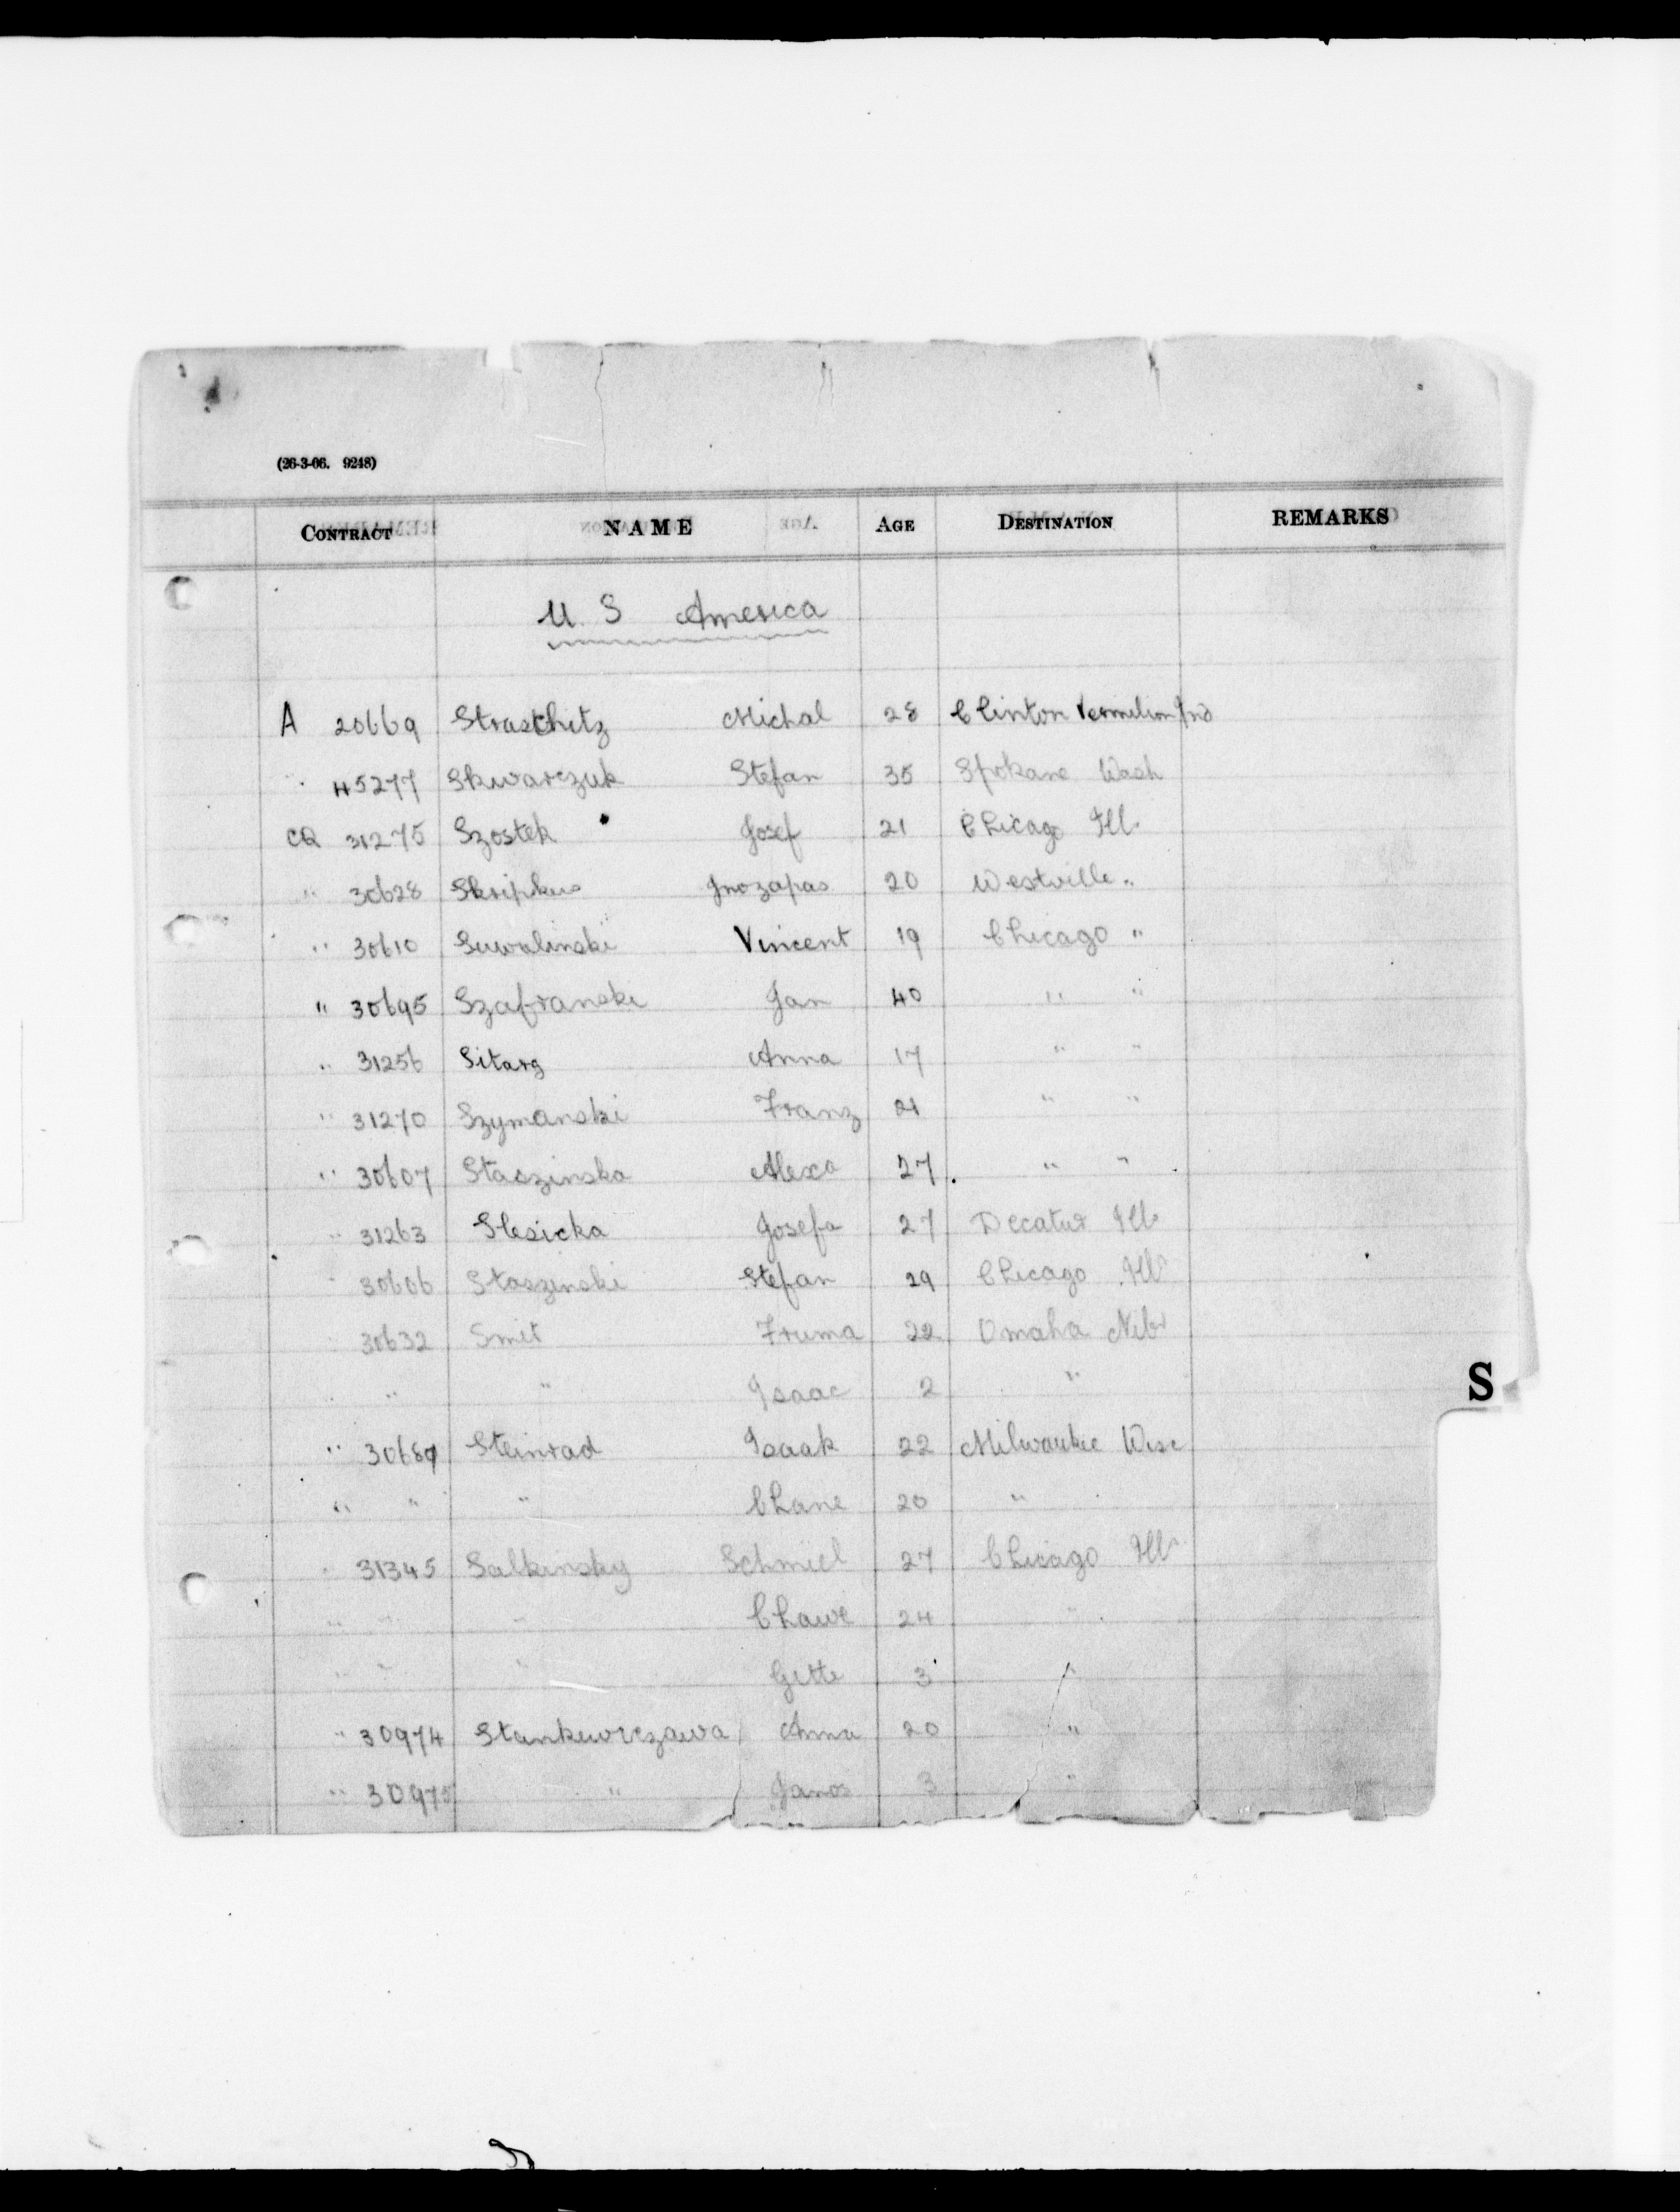 (26-3-06. 9248)
CONTRACT NAME AGE DESTINATION REMARKS
U. S America
A 20669 Straschitz Michal 28 Clinton Vermilion Ind
" 45277 Skwarczuk Stefan 35 Spokane Wash
CQ 31275 Szostek Josef 21 Chicago Ill
" 30628 Skripkus Jnozapas 20 Westville "
" 30610 Suwalinski Vincent 19 Chicago "
" 30695 Szafranski Jan 40 " "
" 31256 Sitarz Anna 17 " "
" 31270 Szymanski Franz 21 " "
" 30607 Staszinska Alexa 27 " "
" 31263 Slesicka Josefa 27 Decatur Ill
" 30606 Staszinski Stefan 29 Chicago Ill
" 30632 Smit Fruma 22 Omaha Nebr
" " Isaac 2 "
" 30687 Steinrad Isaak 22 Milwaukee Wisc
" " " Chane 20 "
" 31345 Salkinsky Schmiel 27 Chicago Ill
" " " Chawe 24 "
" " " Gitte 3 "
" 30974 Stankiewiczawa Anna 20 "
" 30975 " Janos 3 "
S